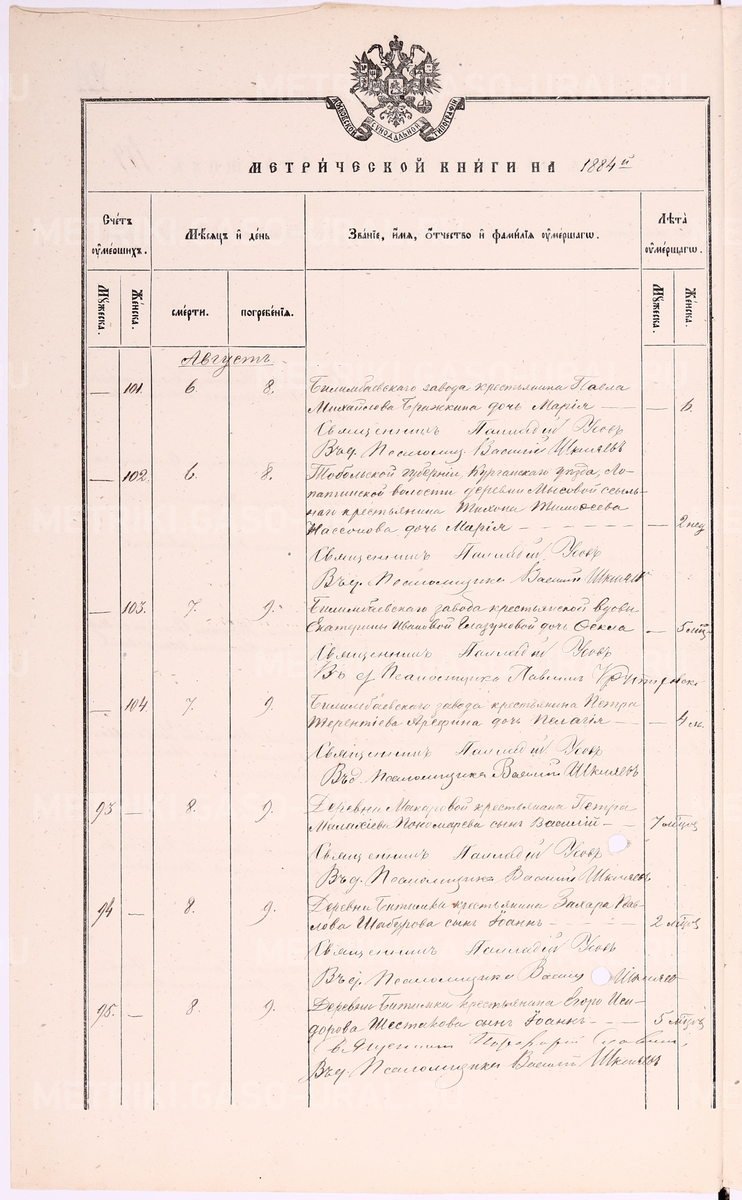 МОСКОВСКОЙ СѴНОДАЛЬНОЙ ТИПОГРАФІИ
МЕТРИ́ЧЕСКОЙ КНИ́ГИ НА 1884й
Счетъ ᲂумершихъ.
Мѣсяцъ и день
Званіе, имя, отчество и фамилія ᲂумершагѡ.
Лѣта ᲂумершагѡ.
Мꙋжеска.
Женска.
смерти.
погребенія.
Мꙋжеска.
Женска.
Августъ
— 101. 6. 8. Билимбаевскаго завода крестьянина Павла
Михайлова дочь Марія — — — 6.
Священникъ Палладій Усовъ
Въ д. Псаломщ. Василій Шкляевъ
— 102. 6. 8. Тобольской губерніи, Курганскаго уѣзда, Ло-
патинской волости деревни Мысовой ссыль-
наго крестьянина Тихона Тимоѳеева
дочь Марія — — — 2 нед
Священникъ Палладій Усовъ
Въ д. Псаломщика Василій Шкляевъ
— 103. 7. 9. Билимбаевскаго завода крестьянской вдовы
Екатерины Ивановой Глазуновой дочь Ѳекла — 5 мѣц.
Священникъ Палладій Усовъ
Въ д. Псаломщика Павелъ
— 104 7. 9. Билимбаевскаго завода крестьянина Петра
Терентіева Арефина дочь Пелагія — — 4 м.
Священникъ Палладій Усовъ
Въ д. Псаломщика Василій Шкляевъ
93 — 8. 9. Деревни Макаровой крестьянина Петра
Малахіева Пономарева сынъ Василій — — 7 мѣсяц
Священникъ Палладій Усовъ
Въ д. Псаломщика Василій Шкляевъ
94 — 8. 9. Деревни Битимки крестьянина Захара Пав-
лова Шабурова сынъ Іоаннъ — — — 2 мѣсяц
Священникъ Палладій Усовъ
Въ д. Псаломщика Василій Шкляевъ
95. — 8. 9. Деревни Битимки крестьянина Егора Иси-
дорова Шестакова сынъ Іоаннъ — — — 5 мѣсяц
Священникъ Порфирій Славнинъ
Въ д. Псаломщика Василій Шкляевъ